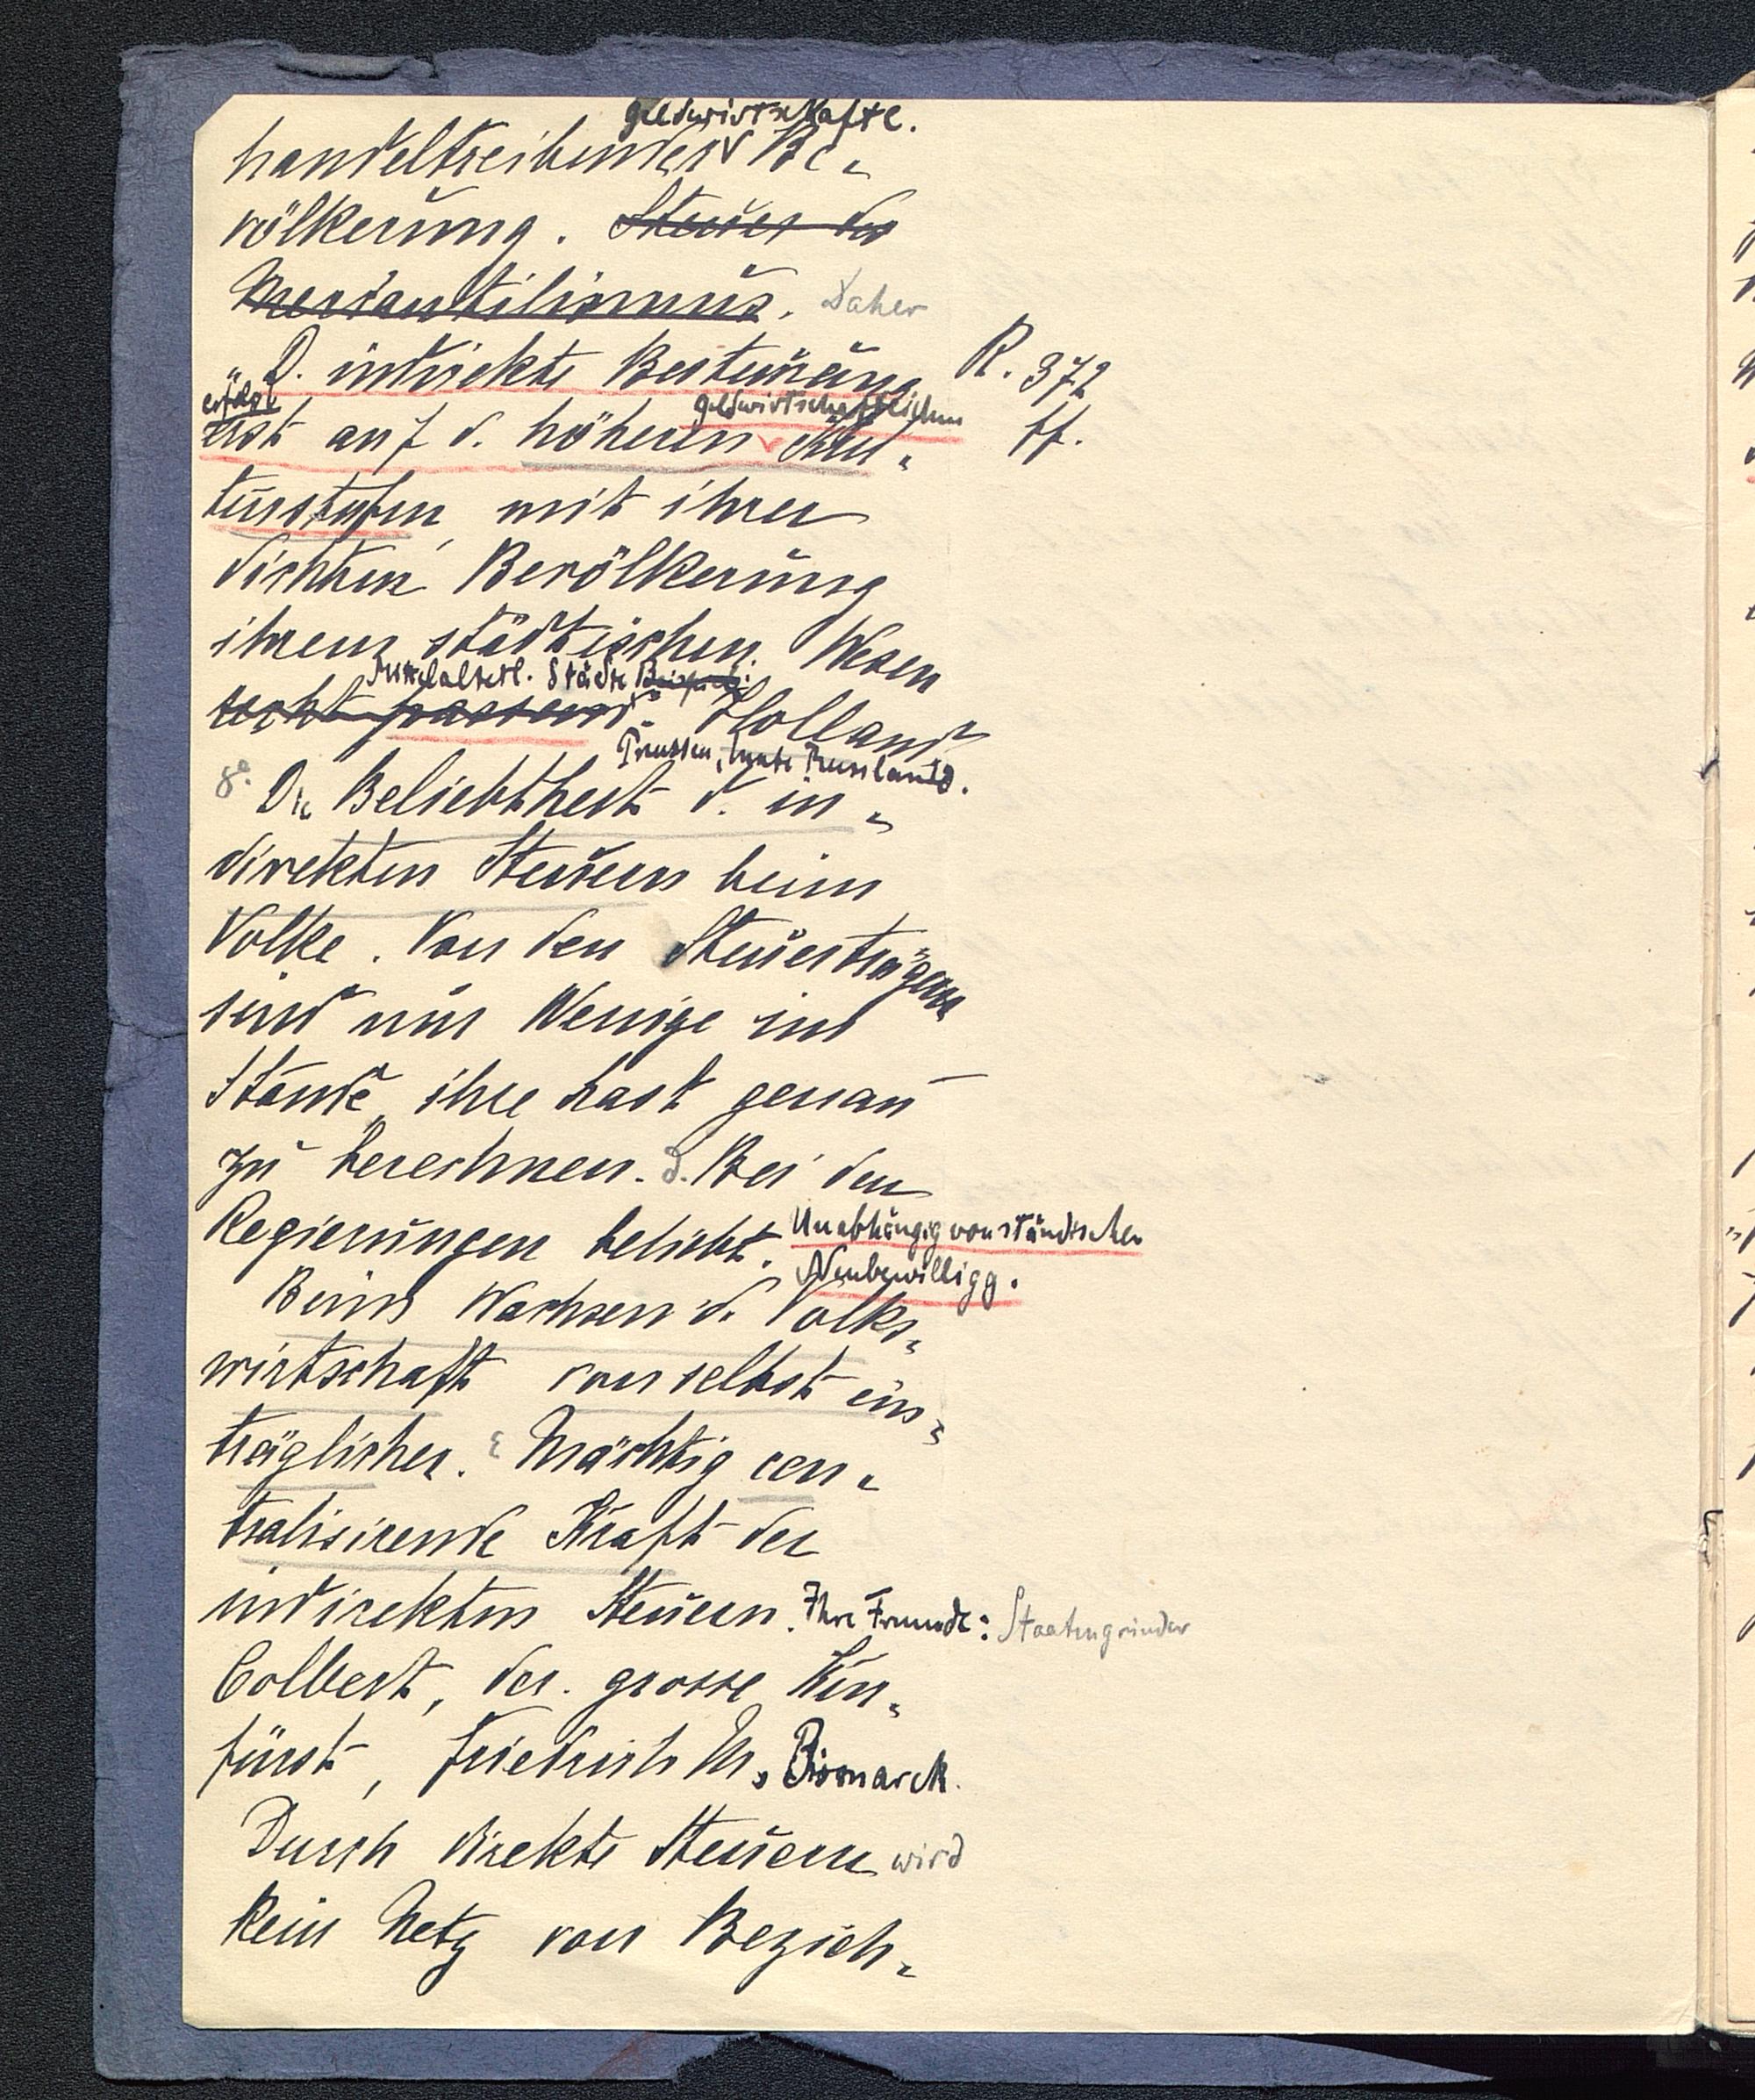 geldwirtschaftl.
handeltreibender Be-
völkerung. Steuer des
Mercantilismus. Daher
D. indirekte Besteuerung R. 372
erfolgt geldwirtschaftlichen
erst auf d. höheren Kul- ff.
turstufen, mit ihrer
dichten Bevölkerung
ihrem städtischen Wesen
Mittelalterl. Städte Beispiele:
recht passend. Holland
Preussen, heute Russland.
Die Beliebtheit d. in-
direkten Steuern beim
Volke. Von den Steuerträgern
sind nur Wenige im
Stande, ihre Last genau
zu berechnen. d. Bei den
Regierungen beliebt. Unabhängig von ständischer
Neubewilligg.
Beim Wachsen d. Volks-
wirtschaft von selbst ein-
träglicher. Mächtig cen-
tralisirende Kraft der
indirekten Steuern. Ihre Freunde: Staatengründer
Colbert, der grosse Kur-
fürst, Friedrich M, Bismarck.
Durch direkte Steuern wird
kein Netz von Bezieh-